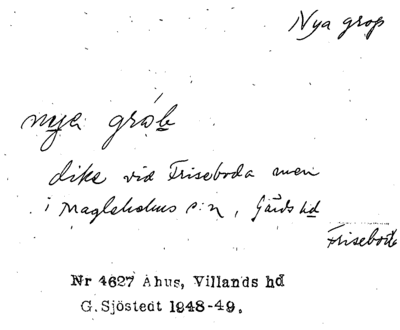 Nya grop
nya gròb
dike vid Friseboda men
i Maglehems s:n, Gärds hd
Friseboda
Nr 4627 Åhus, Villands hd
G. Sjöstedt 1948-49.